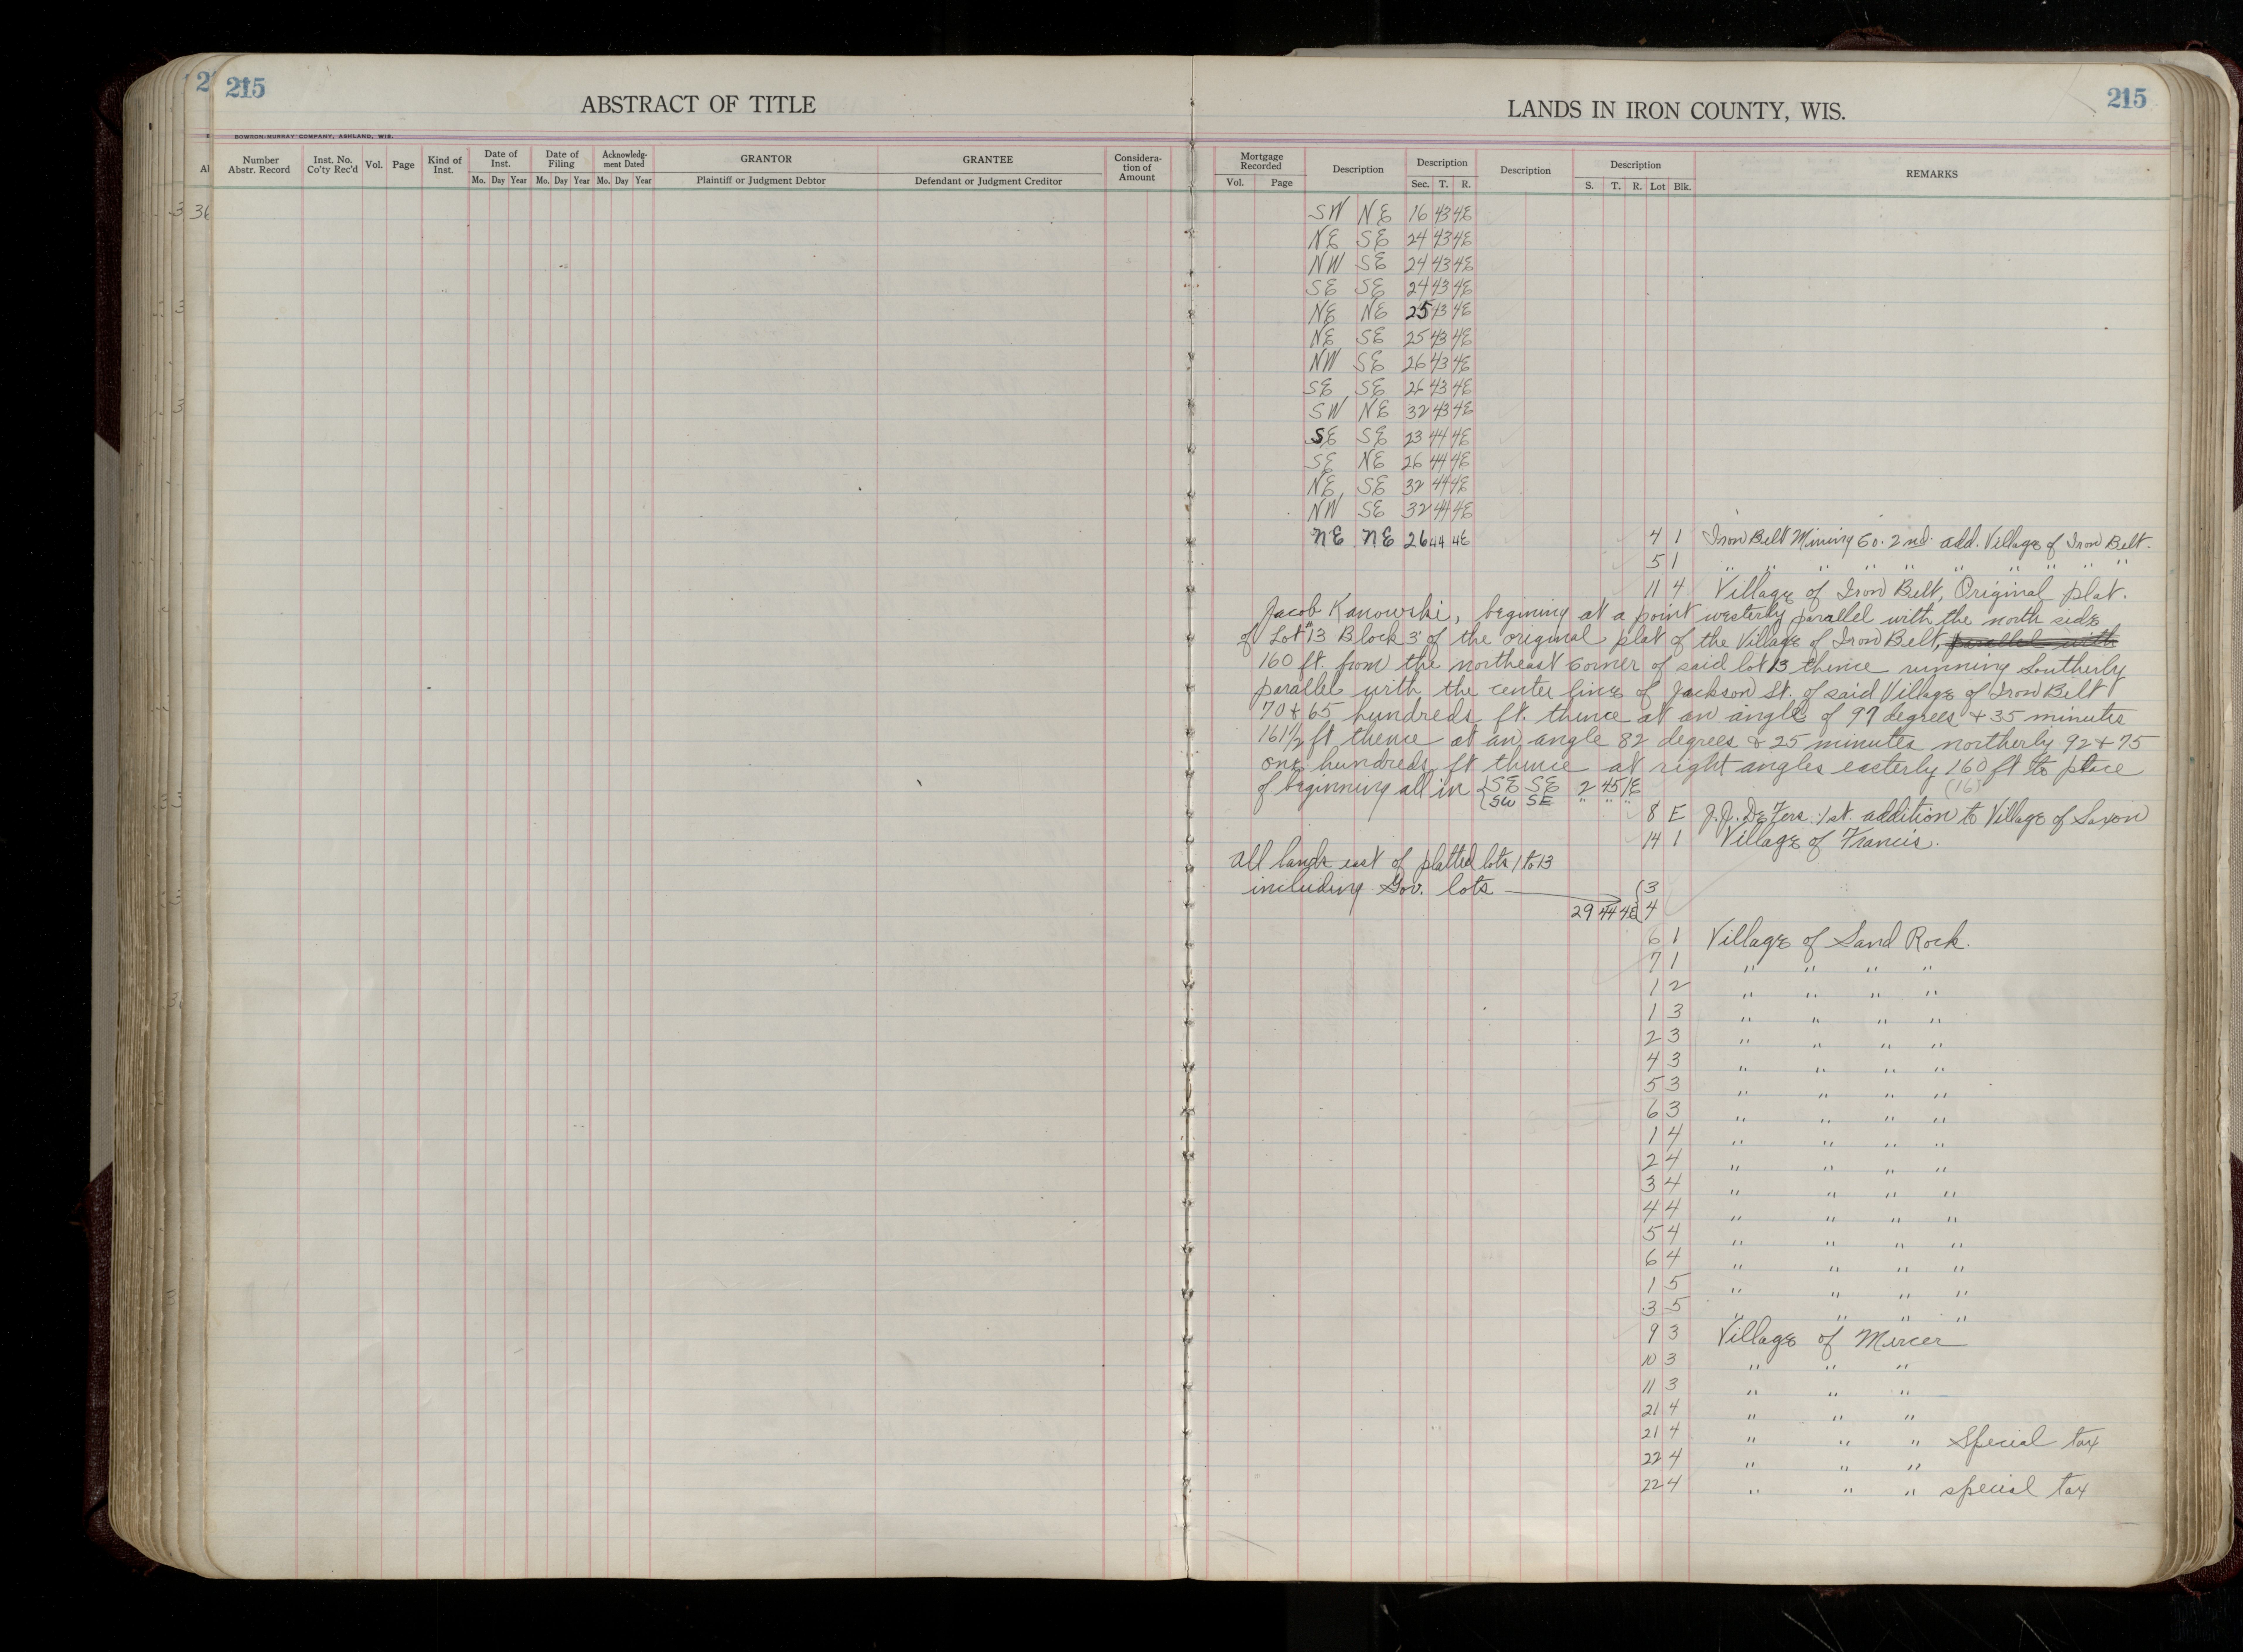 215
ABSTRACT OF TITLE
LANDS IN IRON COUNTY, WIS.
215
BOWRON-MURRAY COMPANY, ASHLAND, WIS.
Number Abstr. Record
Inst. No. Co'ty Rec'd
Vol.
Page
Kind of Inst.
Date of Inst.
Mo. Day Year
Date of Filing
Mo. Day Year
Acknowledgment Dated
Mo. Day Year
GRANTOR
Plaintiff or Judgment Debtor
GRANTEE
Defendant or Judgment Creditor
Consideration of Amount
Mortgage Recorded
Vol. Page
Description
Description
Sec. T. R.
Description
Description
S. T. R. Lot Blk.
REMARKS
SW NE 16 43 4E
NE SE 24 43 4E
NW SE 24 43 4E
SE SE 24 43 4E
NE NE 25 43 4E
NE SE 25 43 4E
NW SE 26 43 4E
SE SE 26 43 4E
SW NE 32 43 4E
SE SE 23 44 4E
SE NE 26 44 4E
NE SE 32 44 4E
NW SE 32 44 4E
NE NE 26 44 4E 4 1 Iron Belt Mining Co. 2nd add. Village of Iron Belt.
5 1 " " " " " " " " " "
11 4 Village of Iron Belt, Original plat.
Jacob Kanowski, begining at a point westerly parallel with the north side
of Lot 13 Block 3 of the original plat of the Village of Iron Belt, parallel with
160 ft. from the northeast corner of said lot 13 thence running Southerly
parallel with the center line of Jackson St. of said Village of Iron Belt
70 & 65 hundreds ft. thence at an angle of 97 degrees & 35 minutes
161 1/2 ft thence at an angle 82 degrees & 25 minutes northerly 92 & 75
one hundreds ft thence at right angles easterly 160 ft to place
of beginning all in { SE SE 2 45 1E
SW SE " " "
8 E 1st. addition to Village of Saxon
14 1 Village of Francis.
All lands east of platted lots 1 to 13
including Gov. lots (3
29 44 4E 4
6 1 Village of Sand Rock.
7 1 " " " "
1 2 " " " "
1 3 " " " "
2 3 " " " "
4 3 " " " "
5 3 " " " "
6 3 " " " "
1 4 " " " "
2 4 " " " "
3 4 " " " "
4 4 " " " "
5 4 " " " "
6 4 " " " "
1 5 " " " "
3 5 " " " "
9 3 Village of Mercer
10 3 " " "
11 3 " " "
21 4 " " "
21 4 " " " Special tax
22 4 " " "
22 4 " " " special tax